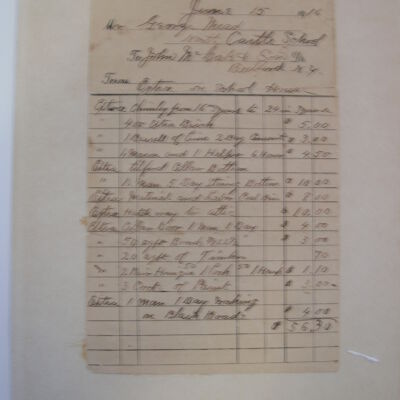 June 15 1916
Mr George Mead
North Castle School
To John Mc Cabe & Son Dr
Bedford N.Y.
Terms Extra on School House
Extra Chimly from 16" square to 24 in square
" 400 Extra Brick $ 5.00
" 1 Barrell of Lime 2 Bag Cement $ 3.00
" 1 Mason and 1 Helper 6 Hours $ 4.50
Extra Cellar Bottom
" 1 Man 5 Day Bottom $ 10.00
Extra Material and Labor Coal Bin $ 8.00
Extra Hatch way to attic $ 10.00
Extra Cellar Door 1 Man 1 Day $ 4.00
" 50 sqft Boards $ 3.00
" 20 sqft of Timber 70
" 2 Pair Hinges 1 Lock 50 1 $ 1.10
" 3 of Paint $ 3.00
Extra 1 man 1 Day working
on Black Board $ 4.00
$ 56.30